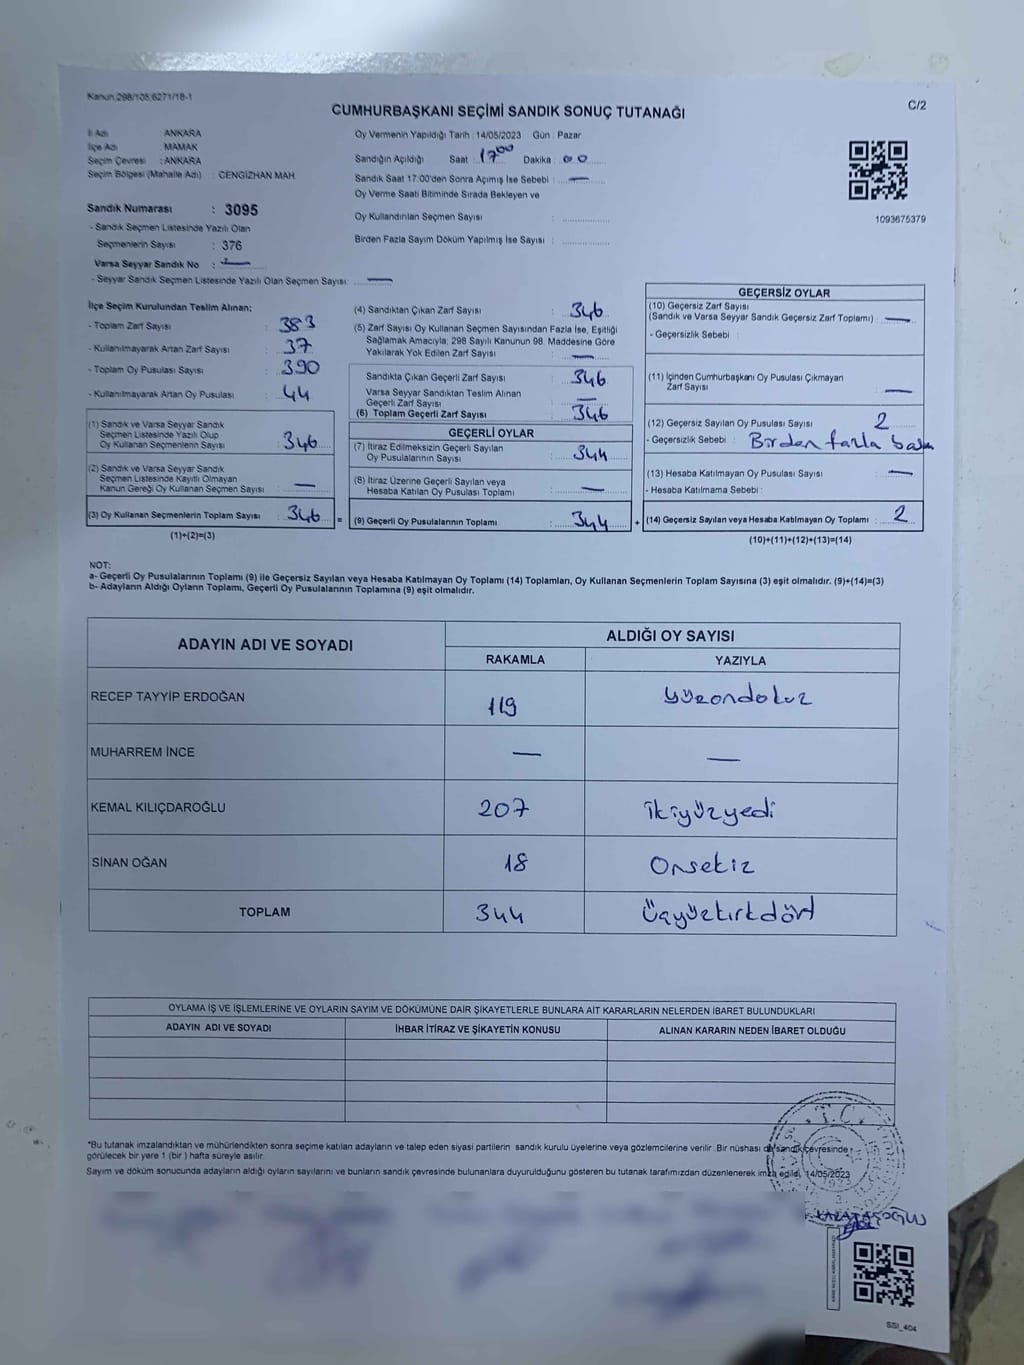 Kanun:298/105;6271/18-1
C/2
CUMHURBAŞKANI SEÇİMİ SANDIK SONUÇ TUTANAĞI
İl Adı : ANKARA
İlçe Adı : MAMAK
Seçim Çevresi : ANKARA
Seçim Bölgesi (Mahalle Adı) : CENGİZHAN MAH
Oy Vermenin Yapıldığı Tarih : 14/05/2023 Gün : Pazar
Sandığın Açıldığı Saat : 17 00 Dakika : 00
Sandık Saat 17:00'den Sonra Açımış İse Sebebi : —
Oy Verme Saati Bitiminde Sırada Bekleyen ve
Oy Kullandırılan Seçmen Sayısı :
Birden Fazla Sayım Döküm Yapılmış İse Sayısı :
1093675379
Sandık Numarası : 3095
- Sandık Seçmen Listesinde Yazılı Olan
Seçmenlerin Sayısı : 376
Varsa Seyyar Sandık No : —
- Seyyar Sandık Seçmen Listesinde Yazılı Olan Seçmen Sayısı : —
İlçe Seçim Kurulundan Teslim Alınan:
- Toplam Zarf Sayısı : 383
- Kullanılmayarak Artan Zarf Sayısı : 37
- Toplam Oy Pusulası Sayısı : 390
- Kullanılmayarak Artan Oy Pusulası : 44
(1) Sandık ve Varsa Seyyar Sandık
Seçmen Listesinde Yazılı Olup
Oy Kullanan Seçmenlerin Sayısı : 346
(2) Sandık ve Varsa Seyyar Sandık
Seçmen Listesinde Kayıtlı Olmayan
Kanun Gereği Oy Kullanan Seçmen Sayısı : —
(3) Oy Kullanan Seçmenlerin Toplam Sayısı : 346 =
(1)+(2)=(3)
(4) Sandıktan Çıkan Zarf Sayısı : 346
(5) Zarf Sayısı Oy Kullanan Seçmen Sayısından Fazla İse, Eşitliği
Sağlamak Amacıyla; 298 Sayılı Kanunun 98. Maddesine Göre
Yakılarak Yok Edilen Zarf Sayısı : —
Sandıkta Çıkan Geçerli Zarf Sayısı : 346
Varsa Seyyar Sandıktan Teslim Alınan
Geçerli Zarf Sayısı : —
(6) Toplam Geçerli Zarf Sayısı : 346
GEÇERLİ OYLAR
(7) İtiraz Edilmeksizin Geçerli Sayılan
Oy Pusulalarının Sayısı : 344
(8) İtiraz Üzerine Geçerli Sayılan veya
Hesaba Katılan Oy Pusulası Toplamı : —
(9) Geçerli Oy Pusulalarının Toplamı : 344 +
GEÇERSİZ OYLAR
(10) Geçersiz Zarf Sayısı
(Sandık ve Varsa Seyyar Sandık Geçersiz Zarf Toplamı) : —
- Geçersizlik Sebebi :
(11) İçinden Cumhurbaşkanı Oy Pusulası Çıkmayan
Zarf Sayısı : —
(12) Geçersiz Sayılan Oy Pusulası Sayısı : 2
- Geçersizlik Sebebi : Birden fazla
(13) Hesaba Katılmayan Oy Pusulası Sayısı : —
- Hesaba Katılmama Sebebi :
(14) Geçersiz Sayılan veya Hesaba Katılmayan Oy Toplamı : 2
(10)+(11)+(12)+(13)=(14)
NOT:
a- Geçerli Oy Pusulalarının Toplamı (9) ile Geçersiz Sayılan veya Hesaba Katılmayan Oy Toplamı (14) Toplamları, Oy Kullanan Seçmenlerin Toplam Sayısına (3) eşit olmalıdır. (9)+(14)=(3)
b- Adayların Aldığı Oyların Toplamı, Geçerli Oy Pusulalarının Toplamına (9) eşit olmalıdır.
ADAYIN ADI VE SOYADI ALDIĞI OY SAYISI
RAKAMLA YAZIYLA
RECEP TAYYİP ERDOĞAN 119 yüzondokuz
MUHARREM İNCE — —
KEMAL KILIÇDAROĞLU 207 ikiyüzyedi
SİNAN OĞAN 18 Onsekiz
TOPLAM 344 Üçyüzkırkdört
OYLAMA İŞ VE İŞLEMLERİNE VE OYLARIN SAYIM VE DÖKÜMÜNE DAİR ŞİKAYETLERLE BUNLARA AİT KARARLARIN NELERDEN İBARET BULUNDUKLARI
ADAYIN ADI VE SOYADI İHBAR İTİRAZ VE ŞİKAYETİN KONUSU ALINAN KARARIN NEDEN İBARET OLDUĞU
*Bu tutanak imzalandıktan ve mühürlendikten sonra seçime katılan adayların ve talep eden siyasi partilerin sandık kurulu üyelerine veya gözlemcilerine verilir. Bir nüshası da sandık çevresinde
görülecek bir yere 1 (bir ) hafta süreyle asılır.
Sayım ve döküm sonucunda adayların aldığı oyların sayılarını ve bunların sandık çevresinde bulunanlara duyurulduğunu gösteren bu tutanak tarafımızdan düzenlenerek imza edildi. 14/05/2023
T.C.
SSI_404